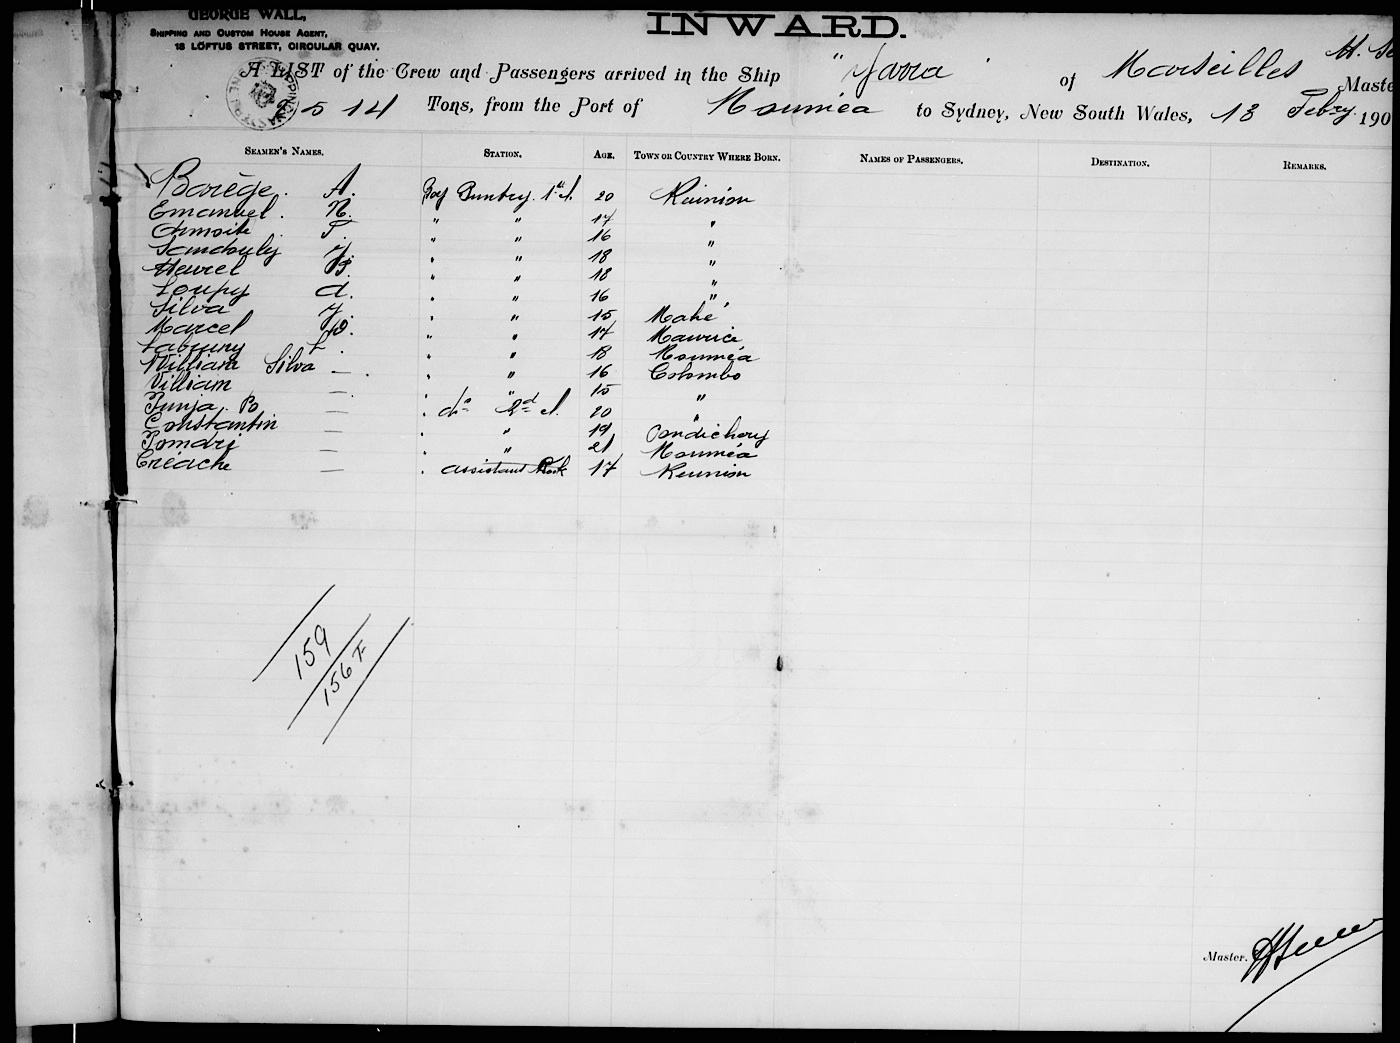 GEORGE WALL,
SHIPPING AND CUSTOM HOUSE AGENT,
18 LOFTUS STREET, CIRCULAR QUAY.
INWARD.
A LIST of the Crew and Passengers arrived in the Ship "Yarra" of Marseilles
Master
5514 Tons, from the Port of Nouméa to Sydney, New South Wales, 13 Febry. 190
SEAMEN'S NAMES. STATION. AGE. TOWN OR COUNTRY WHERE BORN. NAMES OF PASSENGERS. DESTINATION. REMARKS.
Barège. A. Boy 1st cl. 20 Réunion
Emanuel. N. " " 17 "
T. " " 16 "
" " 18 "
" " 18 "
Loupy A. " " 16 "
Silva J. " " 15 Mahé
Marcel " " 17 Maurice
L. " " 18 Nouméa
William Silva — " " 16 Colombo
William — " " 15 "
B — do 2nd cl. 20 "
Constantin — " " 19 Pondichery
— " " 21 Nouméa
Créach — assistant Cook 17 Reunion
159
156 F
Master.